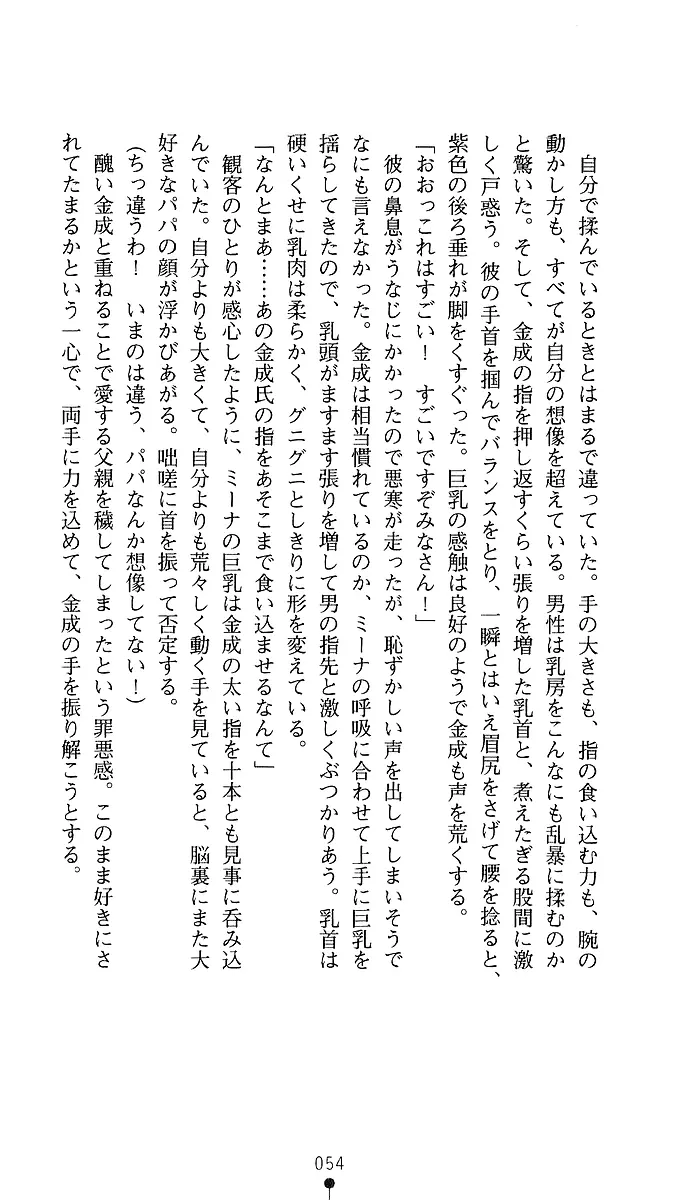 自分で揉んでいるときとはまるで違っていた。手の大きさも、指の食い込む力も、腕の
動かし方も、すべてが自分の想像を超えている。男性は乳房をこんなにも乱暴に揉むのか
と驚いた。そして、金成の指を押し返すくらい張りを増した乳首と、煮えたぎる股間に激
しく戸惑う。彼の手首を掴んでバランスをとり、一瞬とはいえ眉尻をさげて腰を捻ると、
紫色の後ろ垂れが脚をくすぐった。巨乳の感触は良好のようで金成も声を荒くする。
「おおっこれはすごい！　すごいですぞみなさん！」
　彼の鼻息がうなじにかかったので悪寒が走ったが、恥ずかしい声を出してしまいそうで
なにも言えなかった。金成は相当慣れているのか、ミーナの呼吸に合わせて上手に巨乳を
揺らしてきたので、乳頭がますます張りを増して男の指先と激しくぶつかりあう。乳首は
硬いくせに乳肉は柔らかく、グニグニとしきりに形を変えている。
「なんとまあ……あの金成氏の指をあそこまで食い込ませるなんて」
　観客のひとりが感心したように、ミーナの巨乳は金成の太い指を十本とも見事に呑み込
んでいた。自分よりも大きくて、自分よりも荒々しく動く手を見ていると、脳裏にまた大
好きなパパの顔が浮かびあがる。咄嗟に首を振って否定する。
（ちっ違うわ！　いまのは違う、パパなんか想像してない！）
　醜い金成と重ねることで愛する父親を穢してしまったという罪悪感。このまま好きにさ
れてたまるかという一心で、両手に力を込めて、金成の手を振り解こうとする。
054